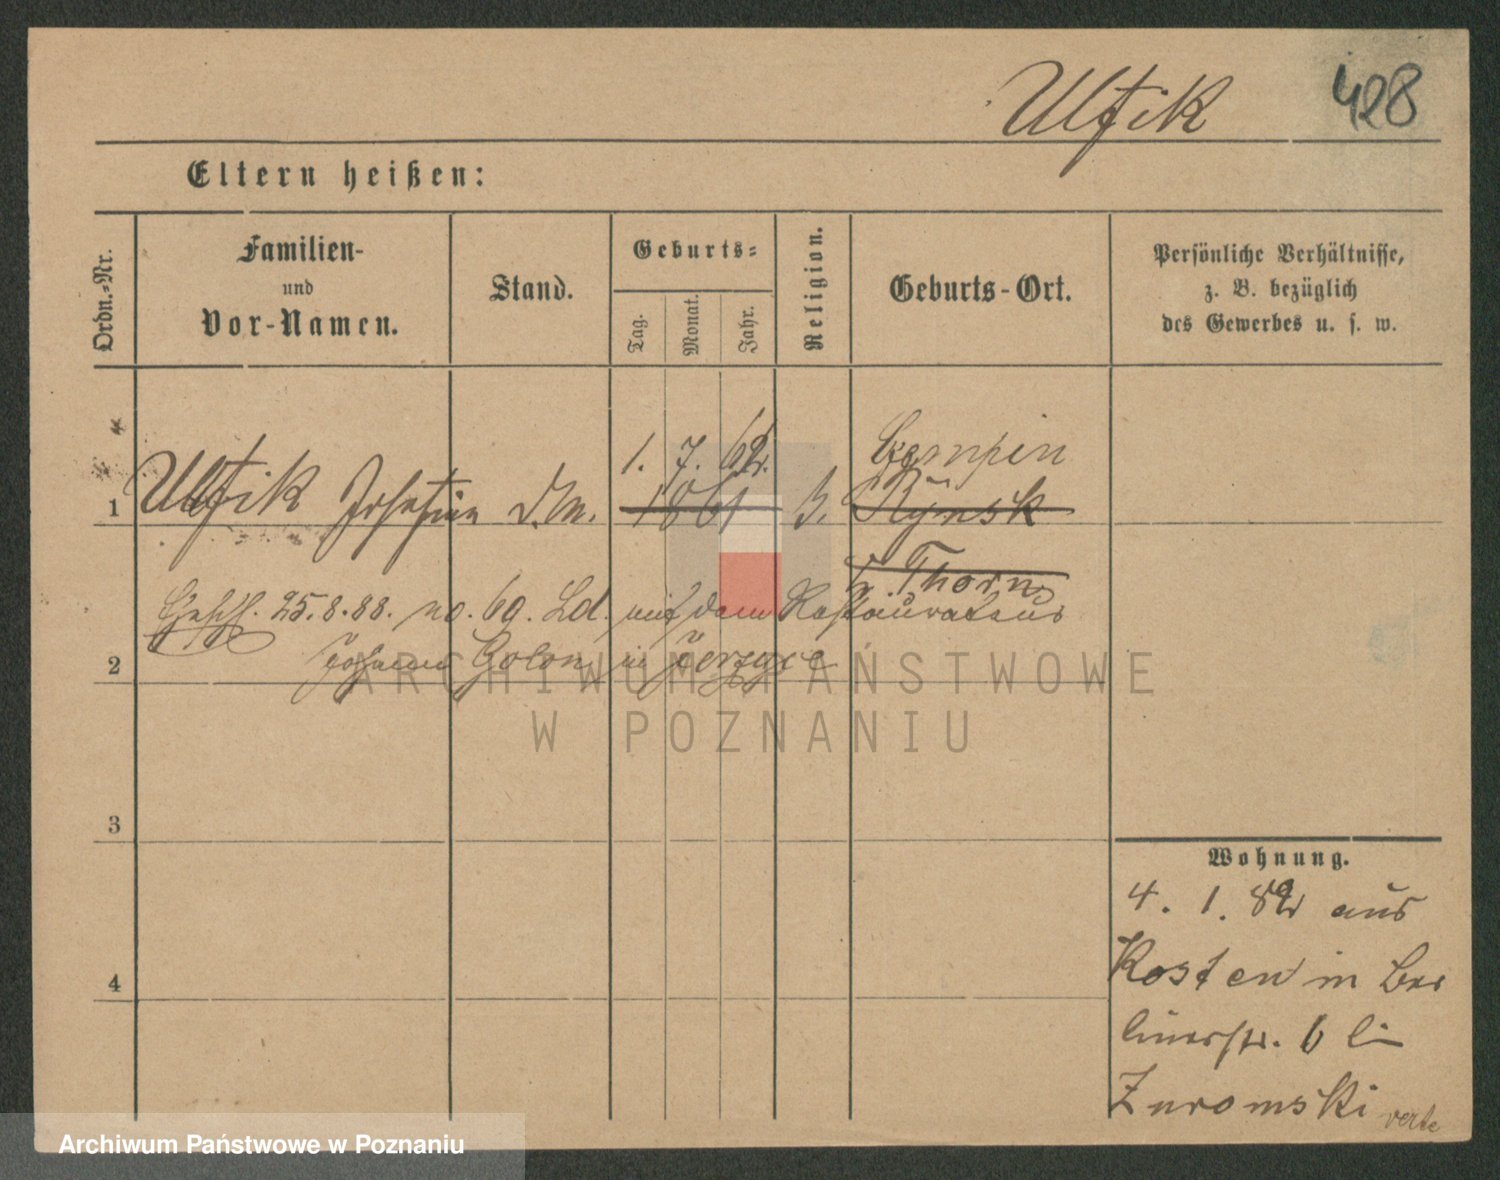 Ulfik 428
Eltern heißen:
Ordn.-Nr.
Familien-
und
Vor-Namen.
Stand.
Geburts-
Tag.
Monat.
Jahr.
Religion.
Geburts-Ort.
Persönliche Verhältnisse,
z. B. bezüglich
des Gewerbes u. s. w.
1. 7. 62. Czempin
1 Ulfik Josefine d.M. 1861 Rynsk
b. Thorn
25.8.88. no. 69. Ld. mit dem Restaurateur
2 Johann Golon in Jerzyce
3
Wohnung.
4. 1. 82 aus
4 Kosten in Ber
linerstr. 6 bei
Zuromski verte
ARCHIWUM PAŃSTWOWE
W POZNANIU
Archiwum Państwowe w Poznaniu